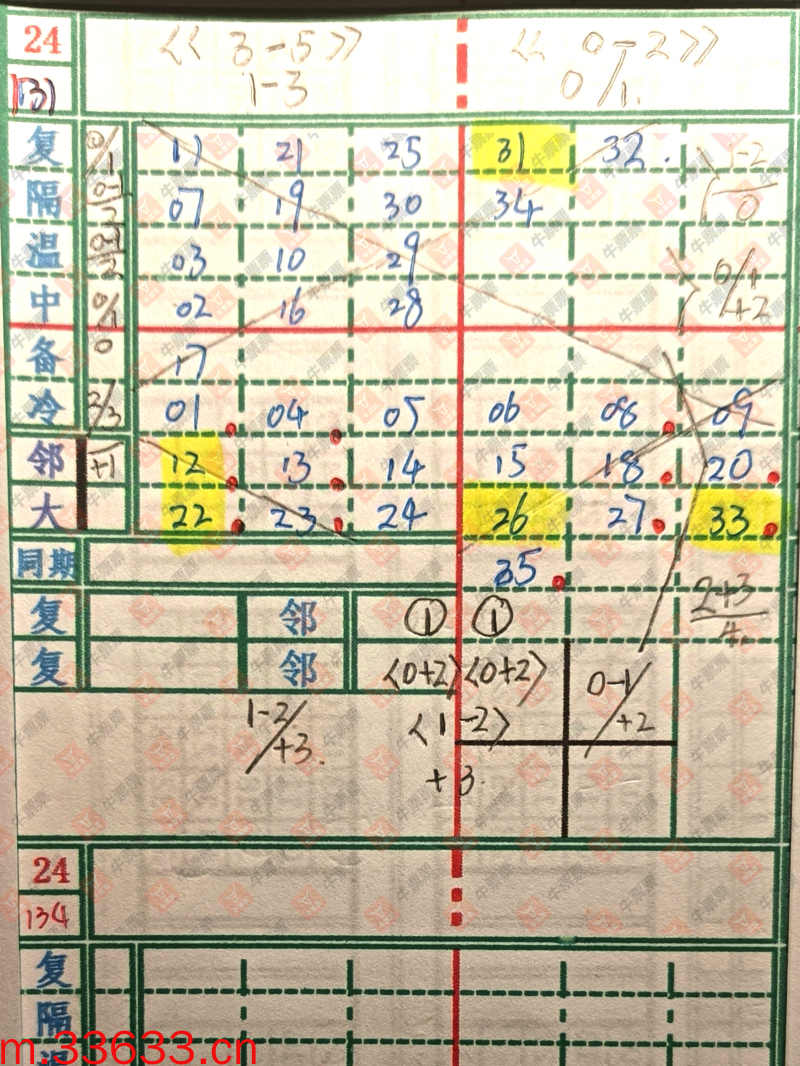 24 << 3-5>> << 0-2>>
131 1-3 0/1.
复 ①/1 11 21 25 31 32. 1-2
隔 0-1/2 07 19 30 34 0
温 03 10 29 0/1
中 0/1 02 16 28 +2
备 0 17
冷 2/3 01 04 05 06 08 09
邻 +1 12 13 14 15 18 20
大 22 23 24 26 27 33
同期 35
复 邻 ① ① 2+3/4.
复 邻 <0+2> <0+2> 0-1/+2
1-2/+3. <1-2>
+3.
24
134
复
隔
温
牛票票
m.33633.cn